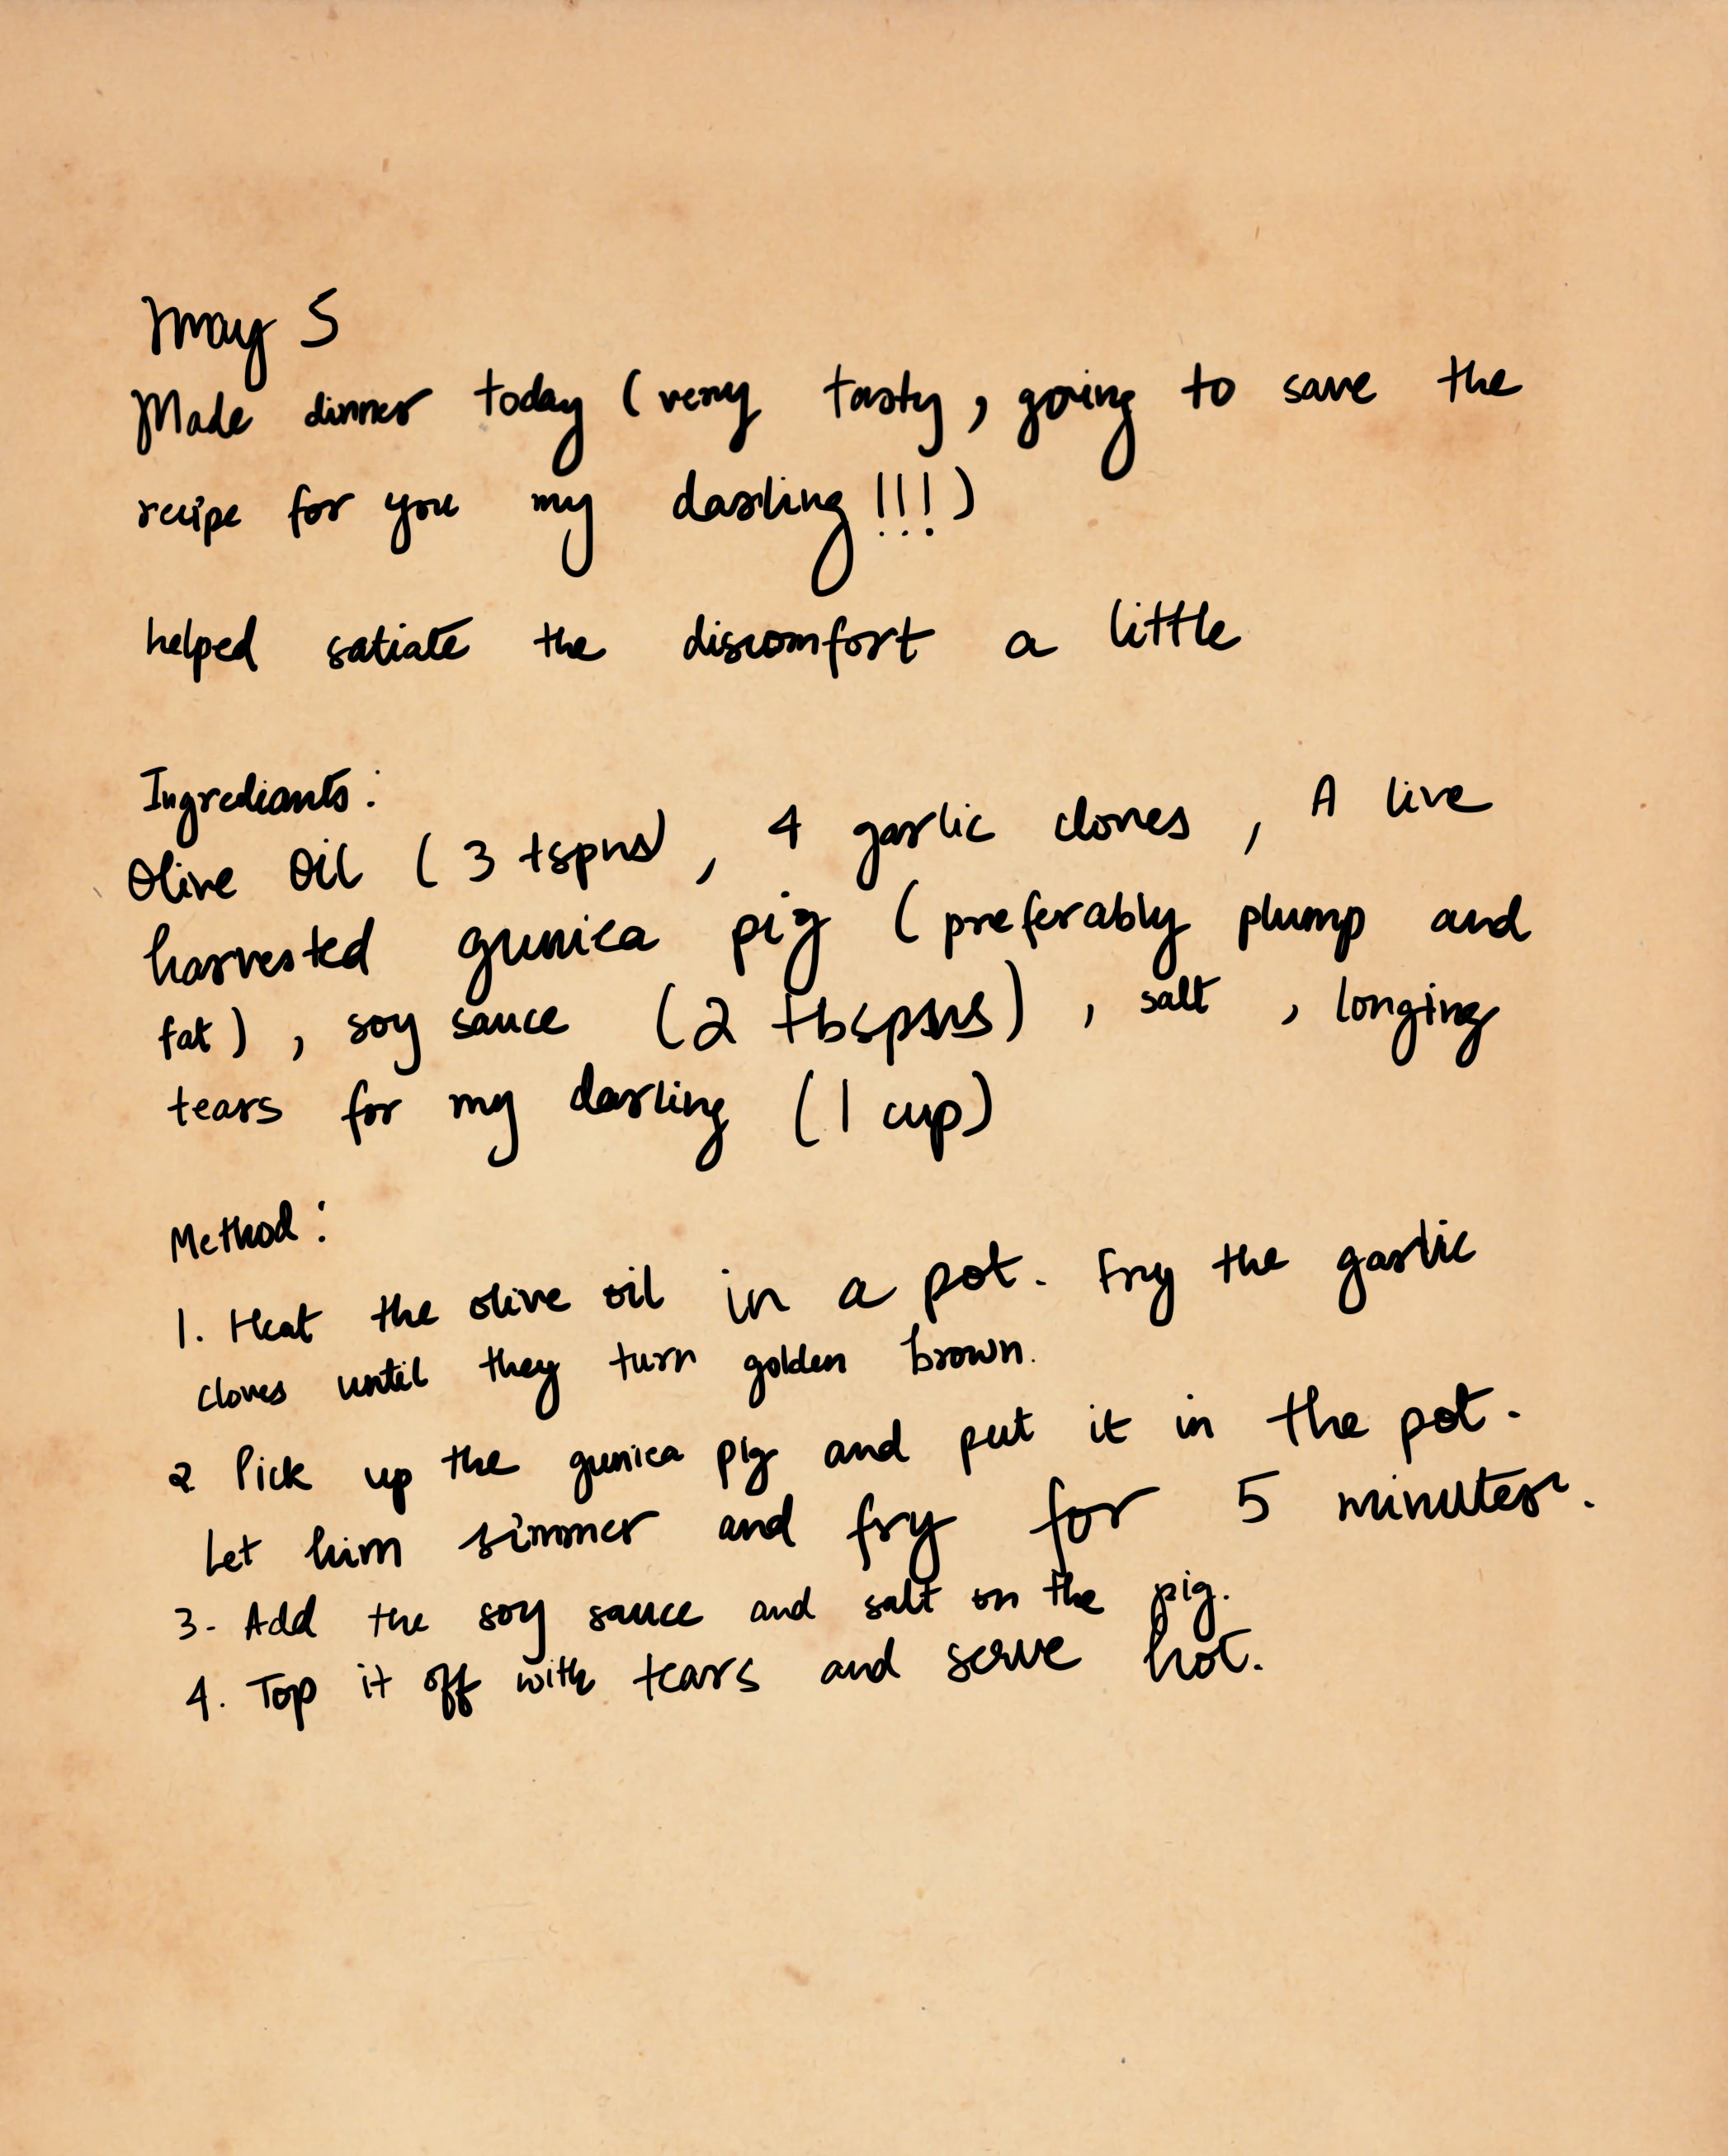 May 5
Made dinner today (very tasty, going to save the
recipe for you my darling!!!)
helped satiate the discomfort a little
Ingrediants:
Olive Oil (3 tspns), 4 garlic cloves, A live
harvested gunica pig (preferably plump and
fat), soy sauce (2 tbspsns), salt, longing
tears for my darling (1 cup)
Method:
1. Heat the olive oil in a pot. Fry the garlic
cloves until they turn golden brown.
2 Pick up the gunica pig and put it in the pot.
Let him simmer and fry for 5 minutes.
3. Add the soy sauce and salt on the pig.
4. Top it off with tears and serve hot.